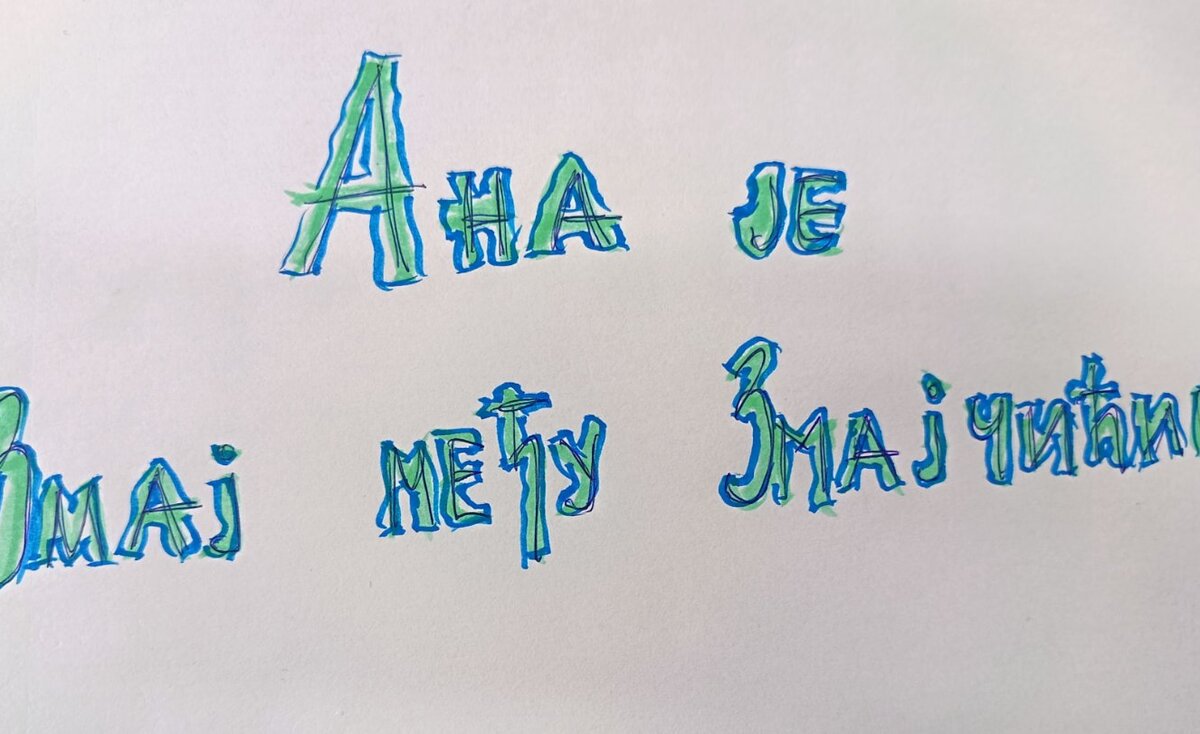 Ана је
Змај међу Змајчићи